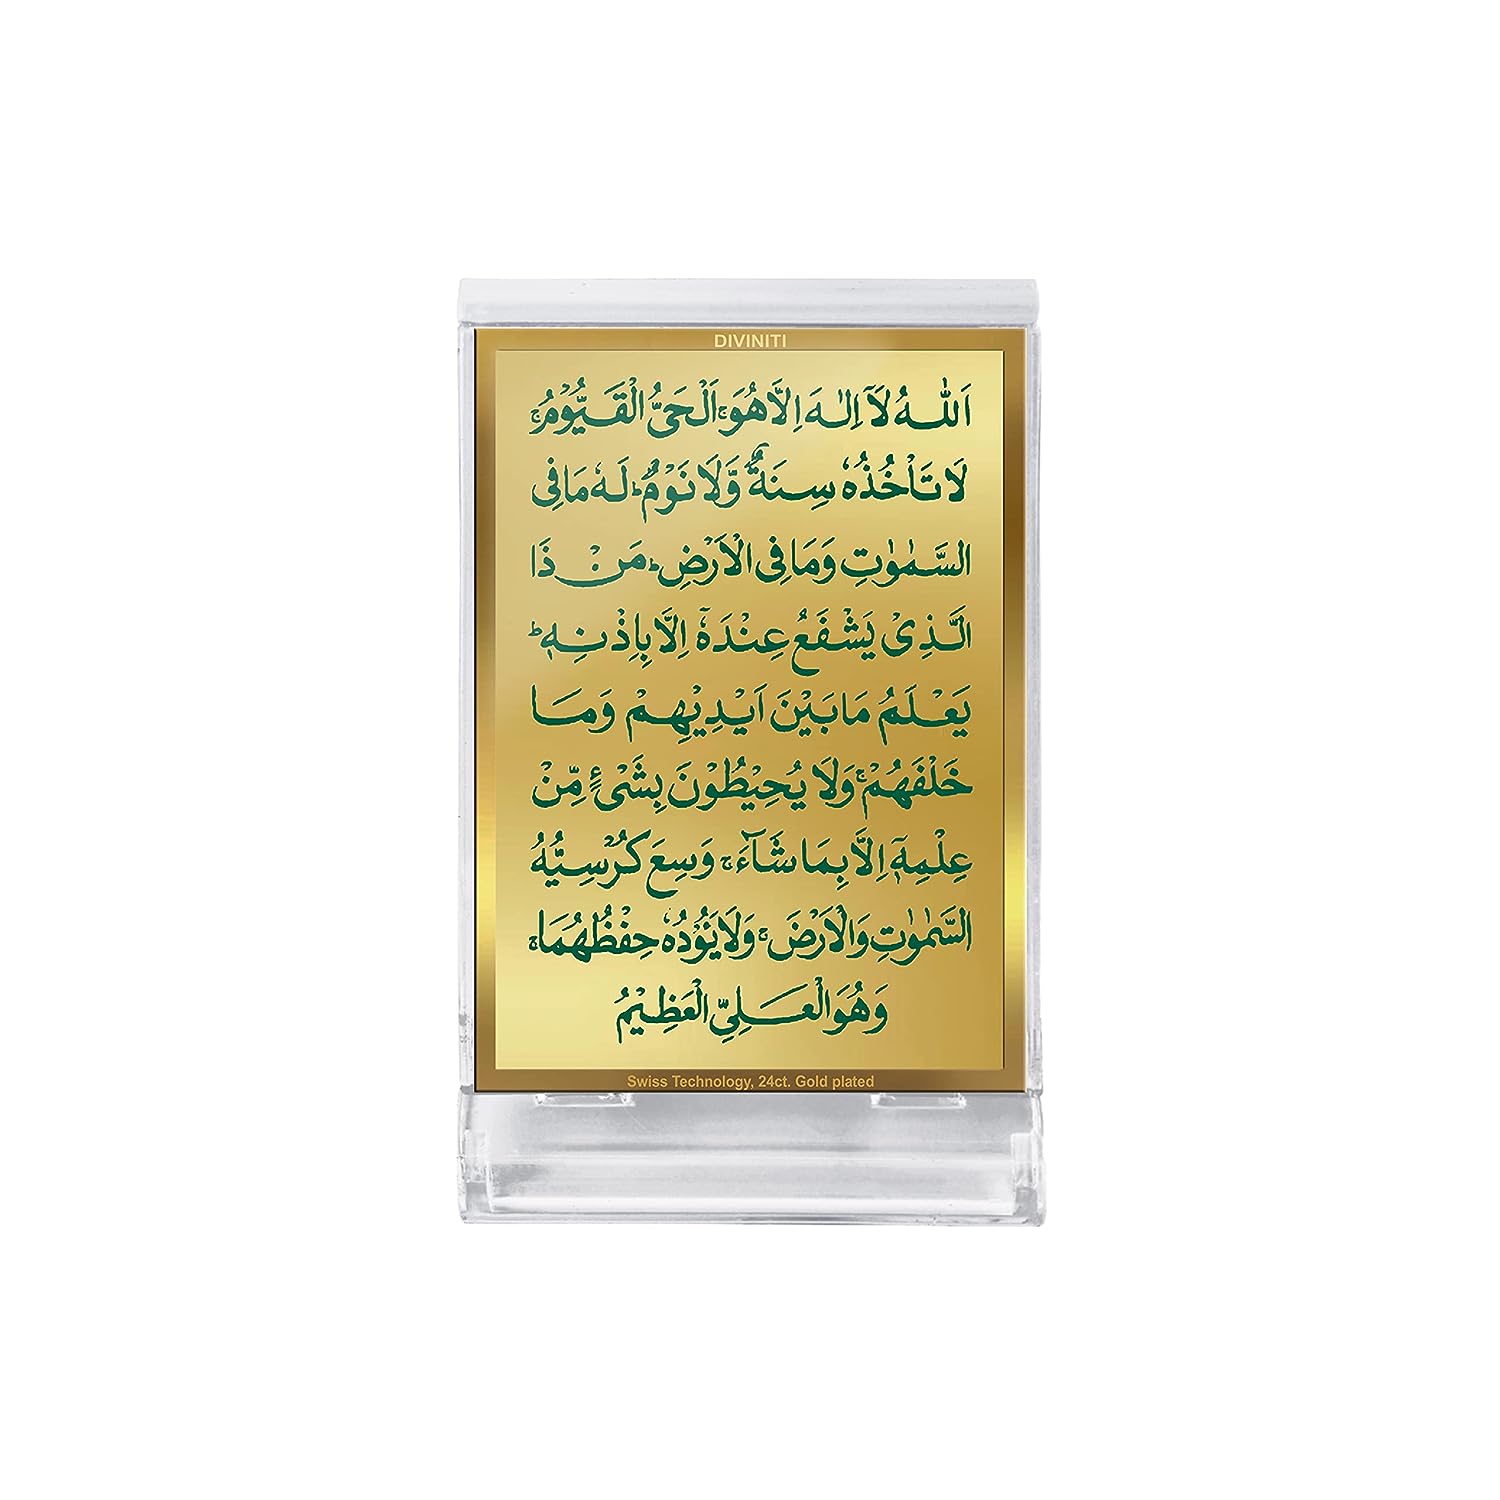 DIVINITI
اَللّٰهُ لَاۤ اِلٰهَ اِلَّا هُوَ ۚ اَلْحَیُّ الْقَیُّوْمُ ۚ
لَا تَاْخُذُهٗ سِنَةٌ وَّلَا نَوْمٌ ؕ لَهٗ مَا فِی
السَّمٰوٰتِ وَمَا فِی الْاَرْضِ ؕ مَنْ ذَا
الَّذِیْ یَشْفَعُ عِنْدَهٗۤ اِلَّا بِاِذْنِهٖ ؕ
یَعْلَمُ مَا بَیْنَ اَیْدِیْهِمْ وَمَا
خَلْفَهُمْ ۚ وَلَا یُحِیْطُوْنَ بِشَیْءٍ مِّنْ
عِلْمِهٖۤ اِلَّا بِمَا شَآءَ ۚ وَسِعَ كُرْسِیُّهُ
السَّمٰوٰتِ وَالْاَرْضَ ۚ وَلَا یَؤُدُهٗ حِفْظُهُمَا ۚ
وَهُوَ الْعَلِیُّ الْعَظِیْمُ
Swiss Technology, 24ct. Gold plated